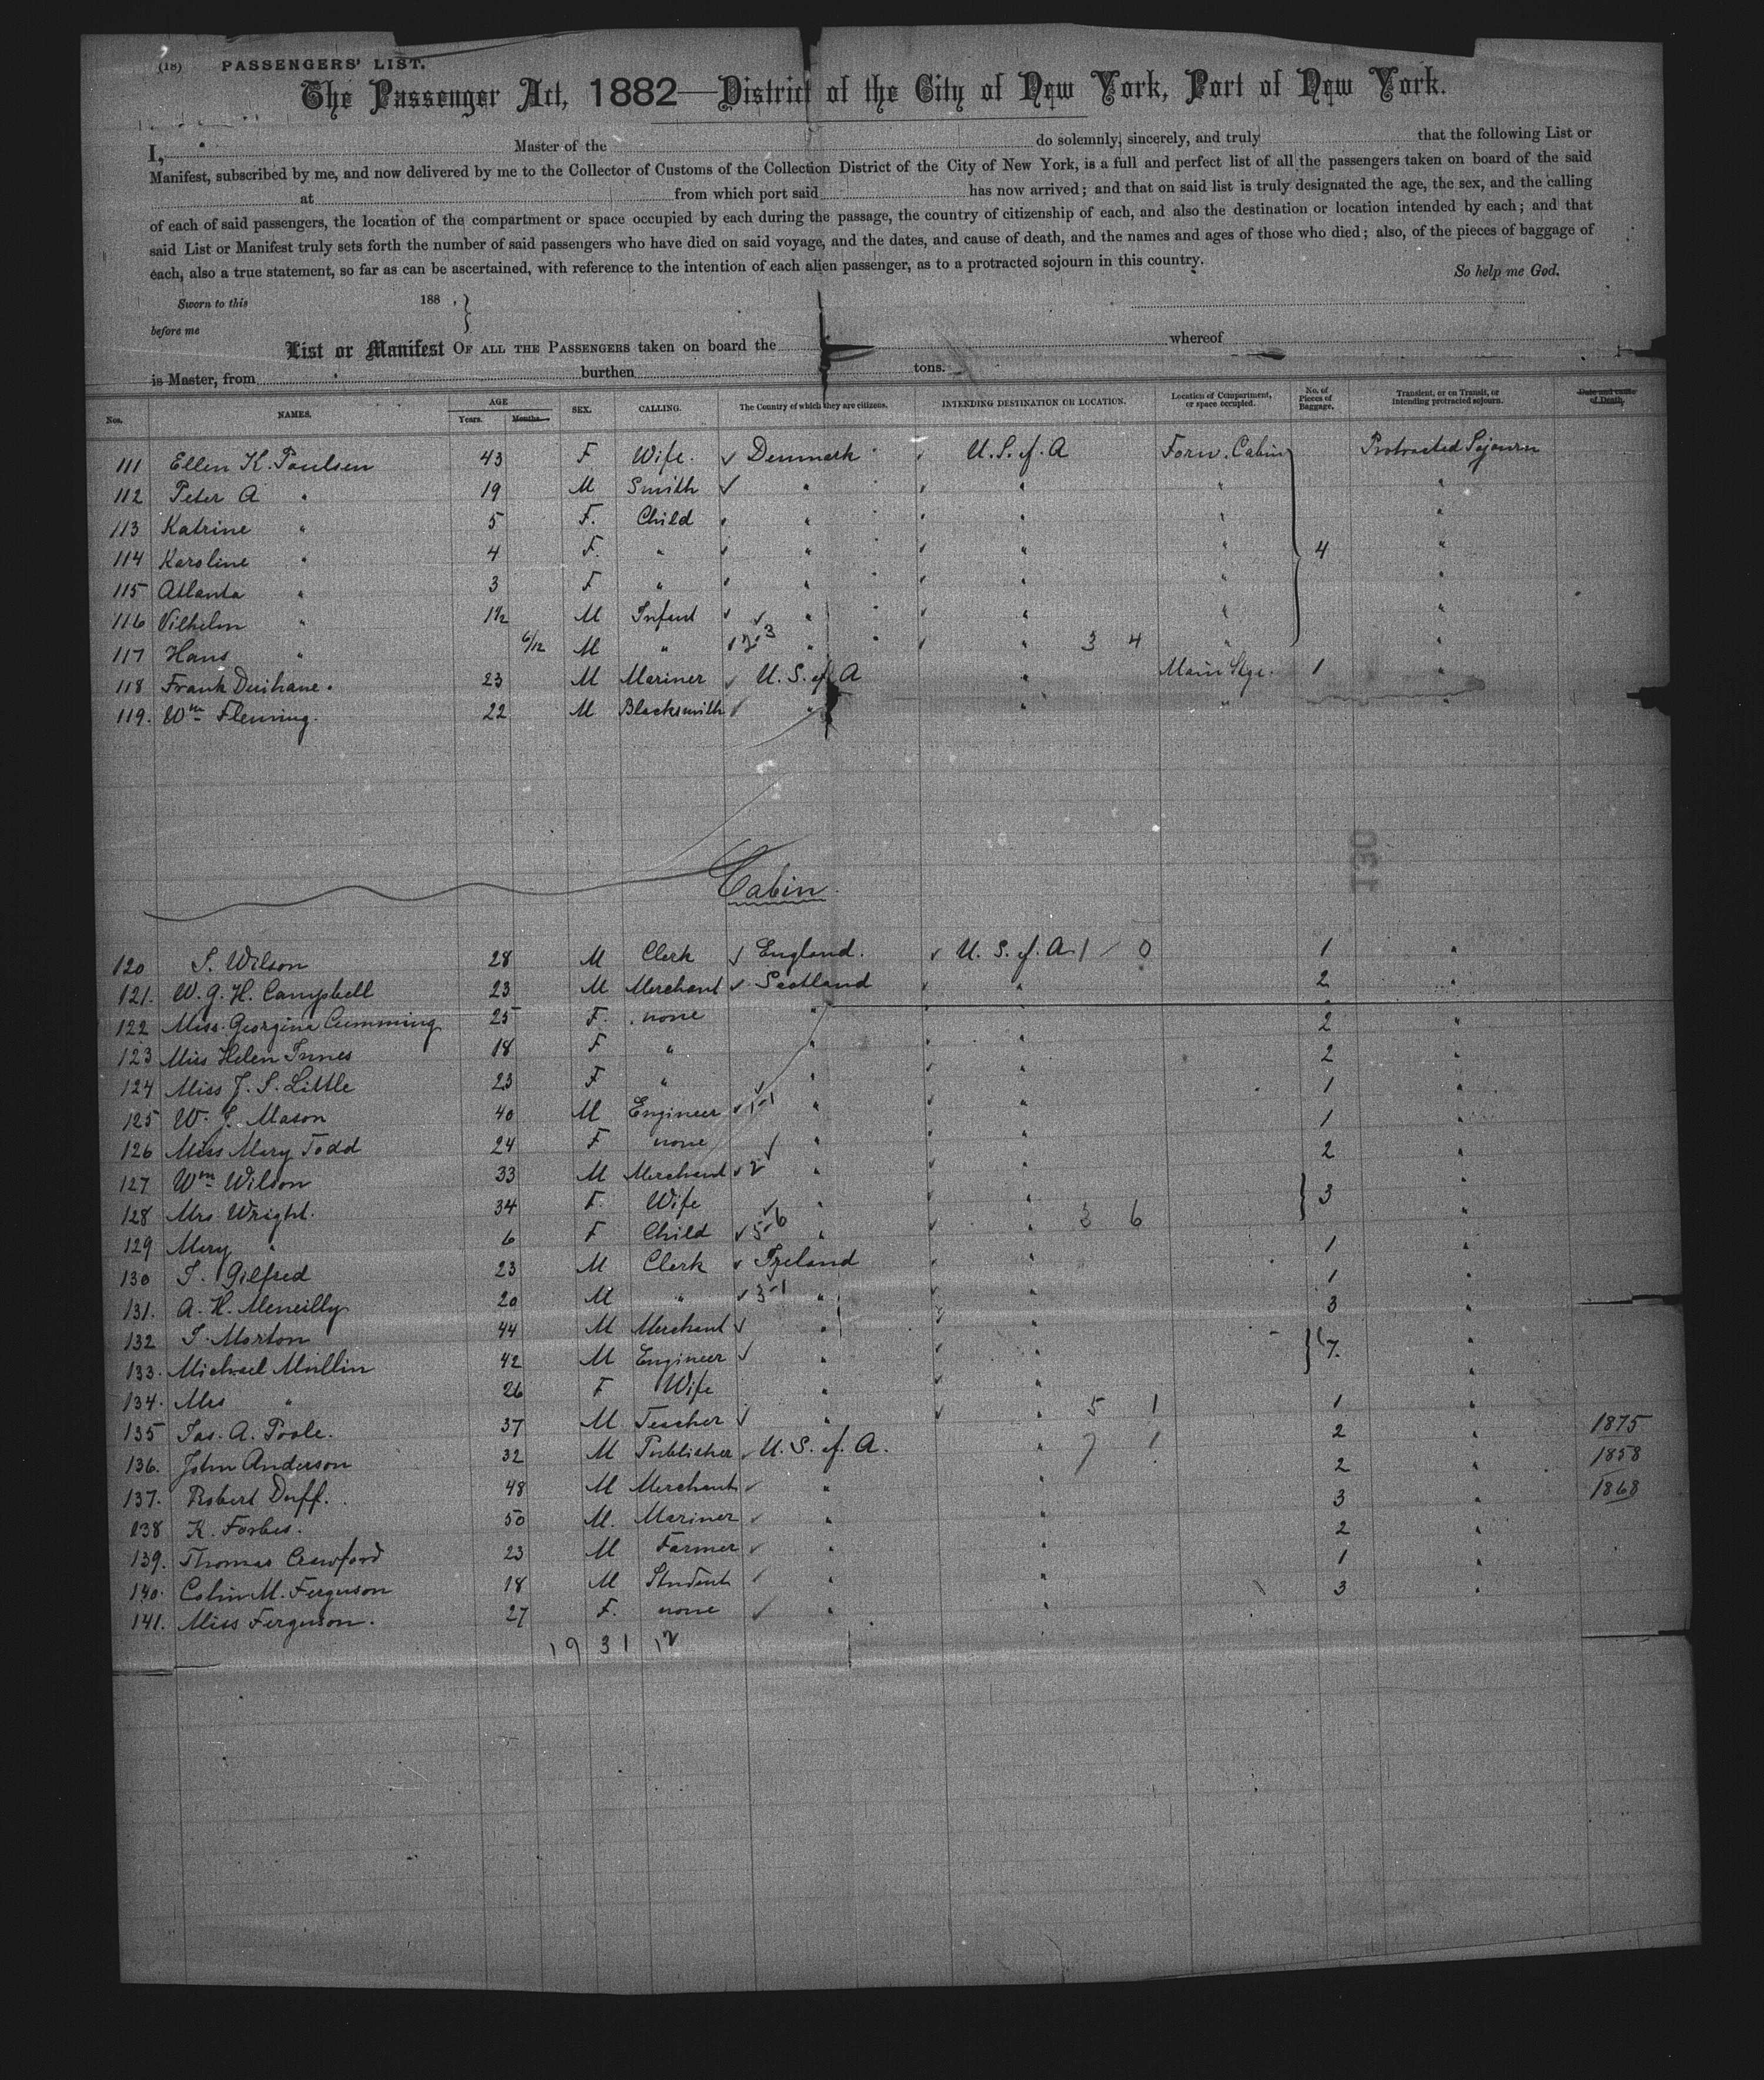 (18) PASSENGERS' LIST.
The Passenger Act, 1882—District of the City of New York, Port of New York.
I, Master of the do solemnly, sincerely, and truly that the following List or
Manifest, subscribed by me, and now delivered by me to the Collector of Customs of the Collection District of the City of New York, is a full and perfect list of all the passengers taken on board of the said
at from which port said has now arrived; and that on said list is truly designated the age, the sex, and the calling
of each of said passengers, the location of the compartment or space occupied by each during the passage, the country of citizenship of each, and also the destination or location intended by each; and that
said List or Manifest truly sets forth the number of said passengers who have died on said voyage, and the dates, and cause of death, and the names and ages of those who died; also, of the pieces of baggage of
each, also a true statement, so far as can be ascertained, with reference to the intention of each alien passenger, as to a protracted sojourn in this country.
So help me God.
Sworn to this 188 , }
before me
List or Manifest OF ALL THE PASSENGERS taken on board the whereof
is Master, from burthen tons.
Nos. NAMES. AGE Years. Months. SEX. CALLING. The Country of which they are citizens. INTENDING DESTINATION OR LOCATION. Location of Compartment, or space occupied. No. of Pieces of Baggage. Transient, or on Transit, or intending protracted sojourn. Date and cause of Death.
111 Ellen K. Paulsen 43 F. Wife. ✓ Denmark ✓ U.S. of. A Forw. Cabin Protracted Sojourn
112 Peter A " 19 M Smith ✓ " ✓ " " "
113 Katrine " 5 F. Child " " " "
114 Karoline " 4 F. " ✓ " ✓ " " 4 "
115 Atlanta " 3 F " " " " "
116 Vilhelm " 1½ M Infant ✓ " ✓ " " "
117 Hans " 6/12 M " ✓ 2-3 " ✓ " 3 4 " "
118 Frank Duihane. 23 M Mariner ✓ U.S. of A " Main Stge. 1 "
119. Wm Fleming. 22 M Blacksmith ✓ " " " "
130
Cabin.
120 S. Wilson 28 M Clerk ✓ England. ✓ U. S. of. A 1 / 0 1 "
121. W. G. H. Campbell 23 M Merchant ✓ Scotland ✓ " 2 "
122 Miss. Georgina Cumming 25 F. none " " 2 "
123 Miss Helen Innes 18 F " " " 2 "
124 Miss J. S. Little 23 F " " ✓ " 1 "
125 W. J. Mason 40 M Engineer ✓ 1-1 " ✓ " 1 "
126 Miss Mary Todd 24 F none " " 2 "
127 Wm Wilson 33 M Merchant ✓ 2 " ✓ " "
128 Mrs. Wright. 34 F. Wife " ✓ " 3 "
129 Mary " 6 F Child ✓ 5-6 " ✓ " 3 6 "
130 S. Gilfred 23 M Clerk ✓ Ireland " 1 "
131. A. H. Meneilly 20 M " ✓ 3-1 " ✓ " 1 "
132 S. Morton 44 M Merchant ✓ " " 3 "
133. Michael Mullin 42 M Engineer ✓ " ✓ " 7. "
134. Mrs " 26 F Wife " ✓ " "
135 Jas. A. Poole. 37 M Teacher ✓ " ✓ " 5 1 1 "
136. John Anderson 32 M Publisher ✓ U. S. of. A. " 7 1 2 " 1875
137. Robert Duff. 48 M Merchant ✓ " " 2 " 1858
138 K. Forbes. 50 M. Mariner ✓ " " 3 " 1868
139. Thomas Crawford 23 M Farmer ✓ " " 2 "
140. Colin M. Ferguson 18 M Student ✓ " " 1 "
141. Miss Ferguson. 27 F. none ✓ " " 3 "
19 31 12